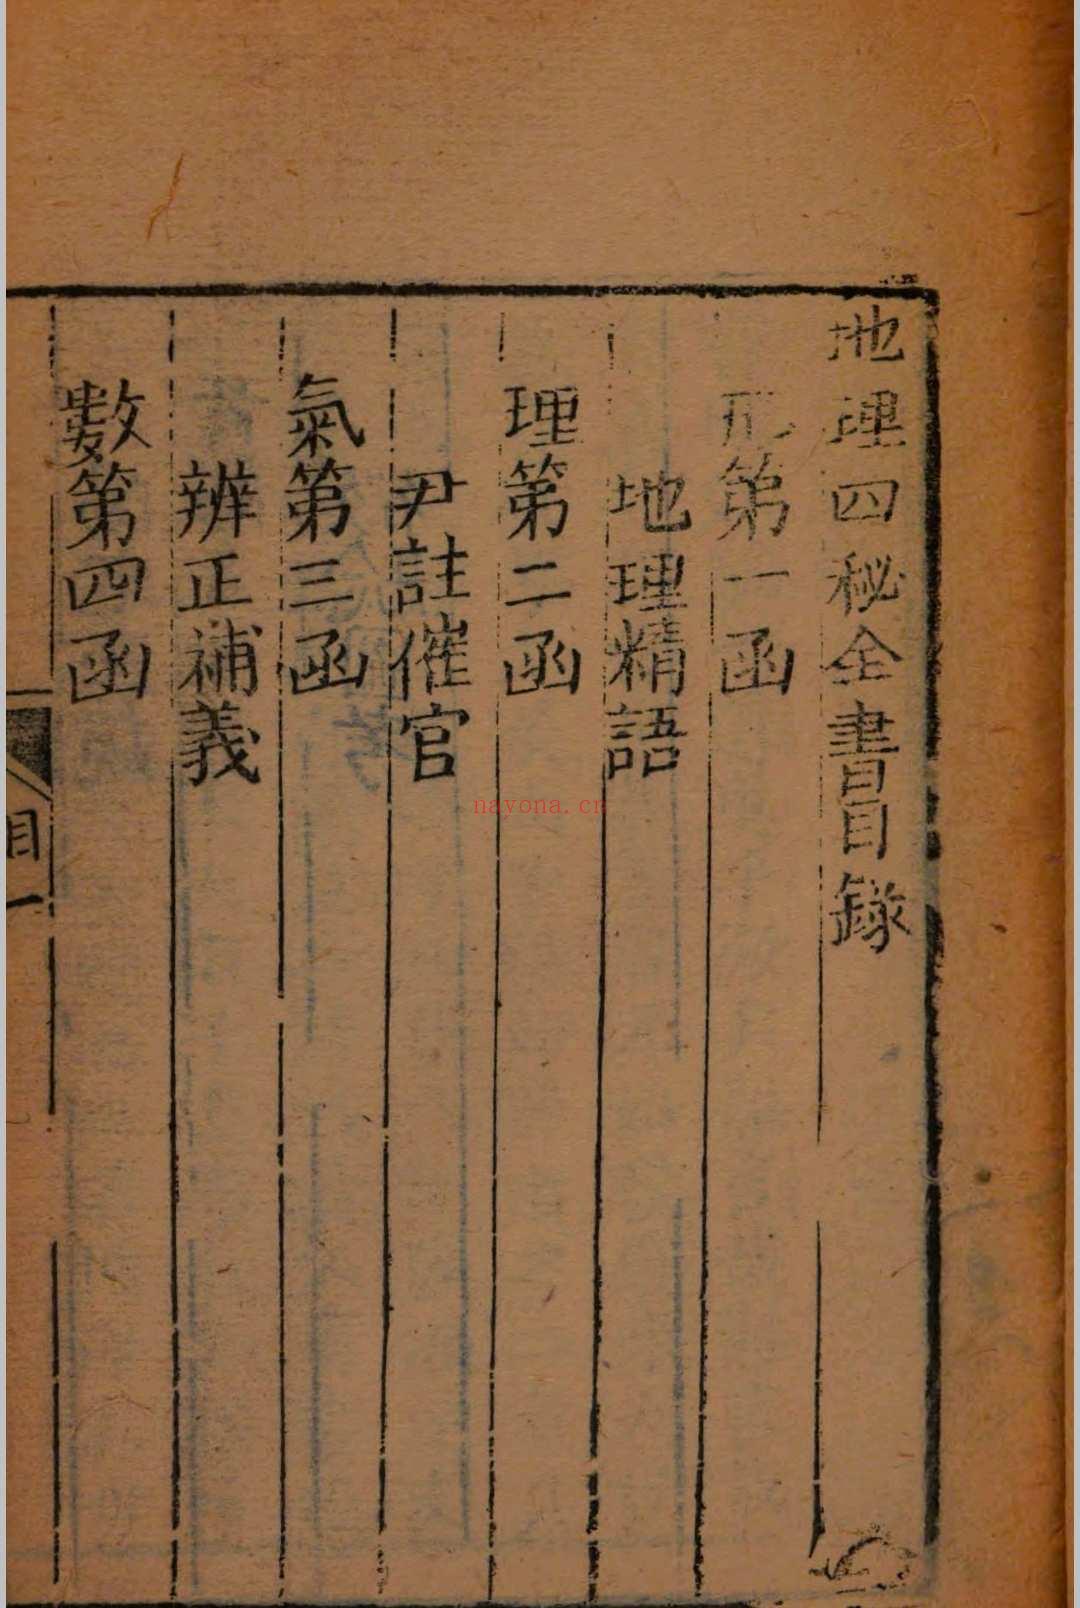 地理四秘全書目錄
形第一函
地理精語
理第二函
尹註催官
氣第三函
辨正補義
數第四函
目一
nayona.cn